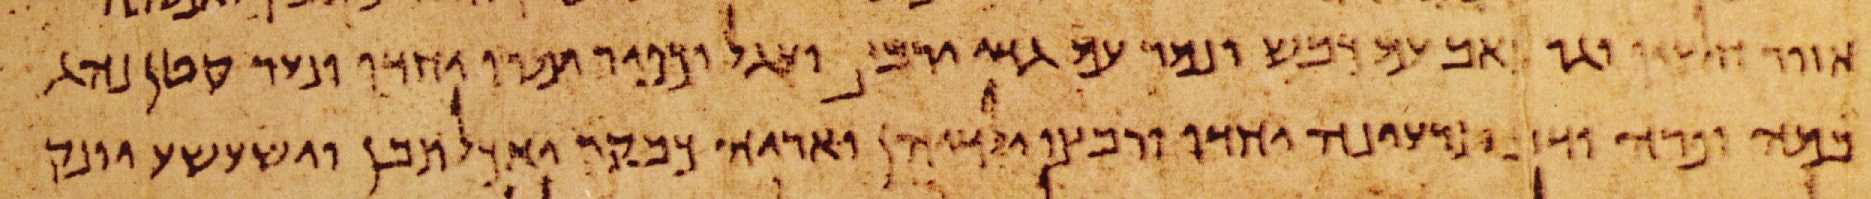 אזור חלציו וגר זאב עם כבש ונמר עם גדי ירבץ ועגל וכפיר ימרו יחדו ונער קטן נהג
במה ופרה ודוב תרעינה יחדו ורבצו ילדיהן ואריה כבקר יאכל תבן ושעשע יונק